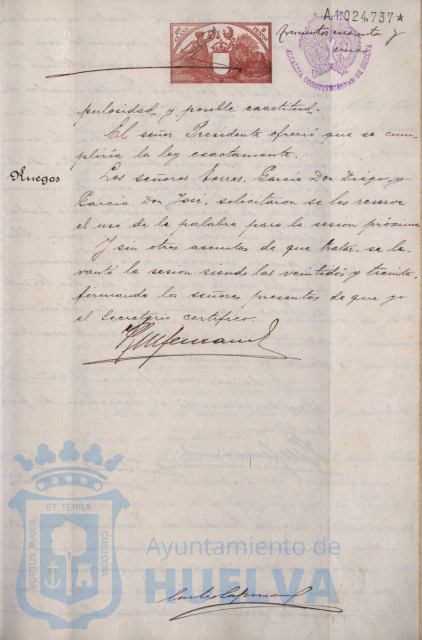 A1.024.737*
ALCALDIA CONSTITUCIONAL DE HUELVA
pulosidad y posible exactitud.
El señor Presidente ofreció que se cum-
pliría la ley exactamente.
Ruegos
Los señores Torres, García Don Diego, y
García Don José, solicitaron se les reserve
el uso de la palabra para la sesion próxima
Y sin otros asuntos de que tratar, se le-
vantó la sesion siendo las veintidos y treinta,
firmando los señores presentes de que yo
el Secretario certifico.
ET TERRÆ
PORTUS MARIS
CUSTODIA
Ayuntamiento de
HUELVA